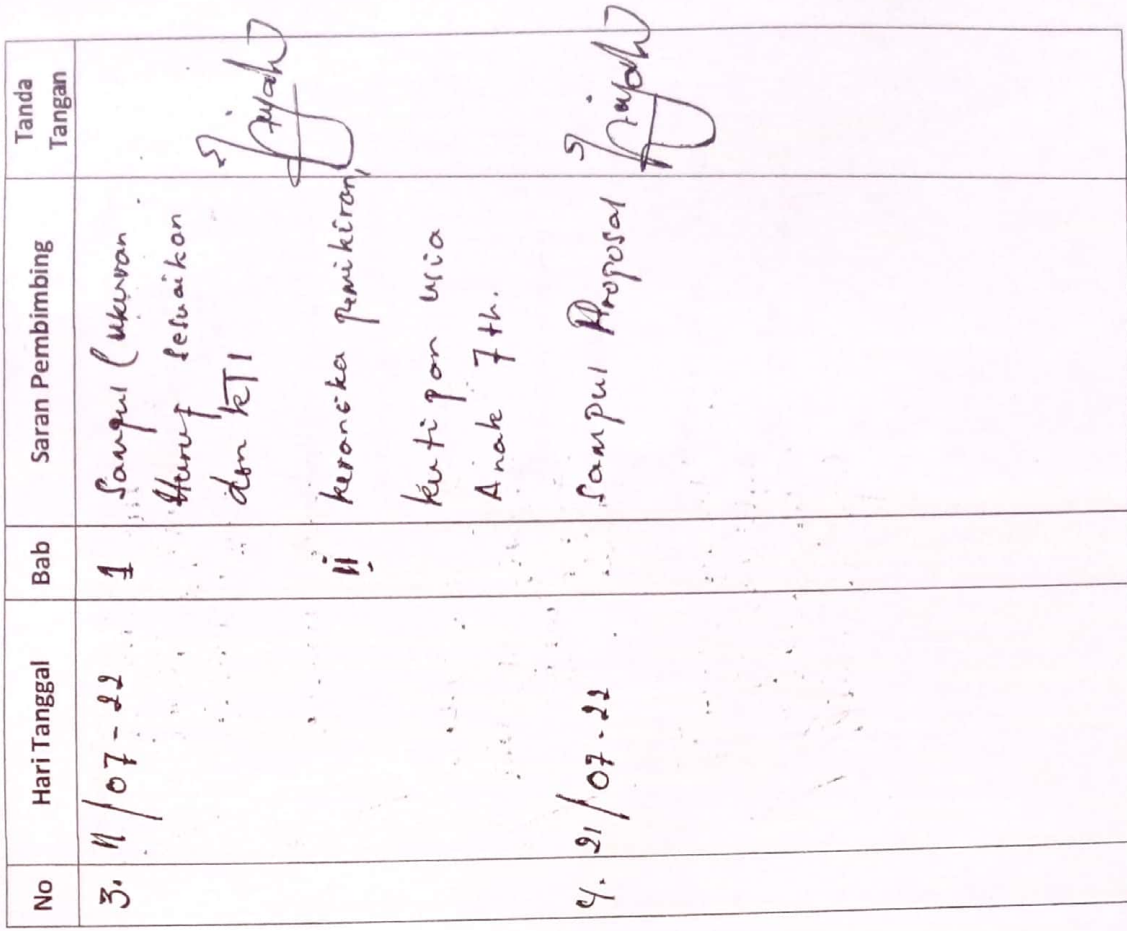 No Hari Tanggal Bab Saran Pembimbing Tanda Tangan
3. 11/07-22 1 Sampul (ukuran
Huruf sesuaikan
dgn KTI
ii kerangka pemikiran,
kutipan usia
Anak 7 th.
4. 21/07-22 Sampul Proposal